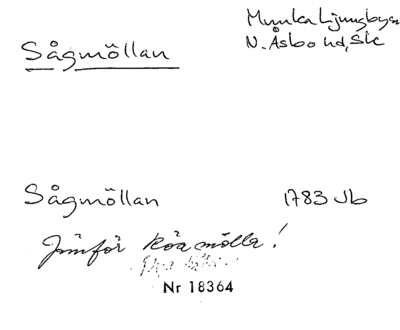 Sågmöllan
Munka Ljungbysn
N. Åsbo hd, Sk
Sågmöllan 1783 Jb
Jämför Röa mölla!
Nr 18364